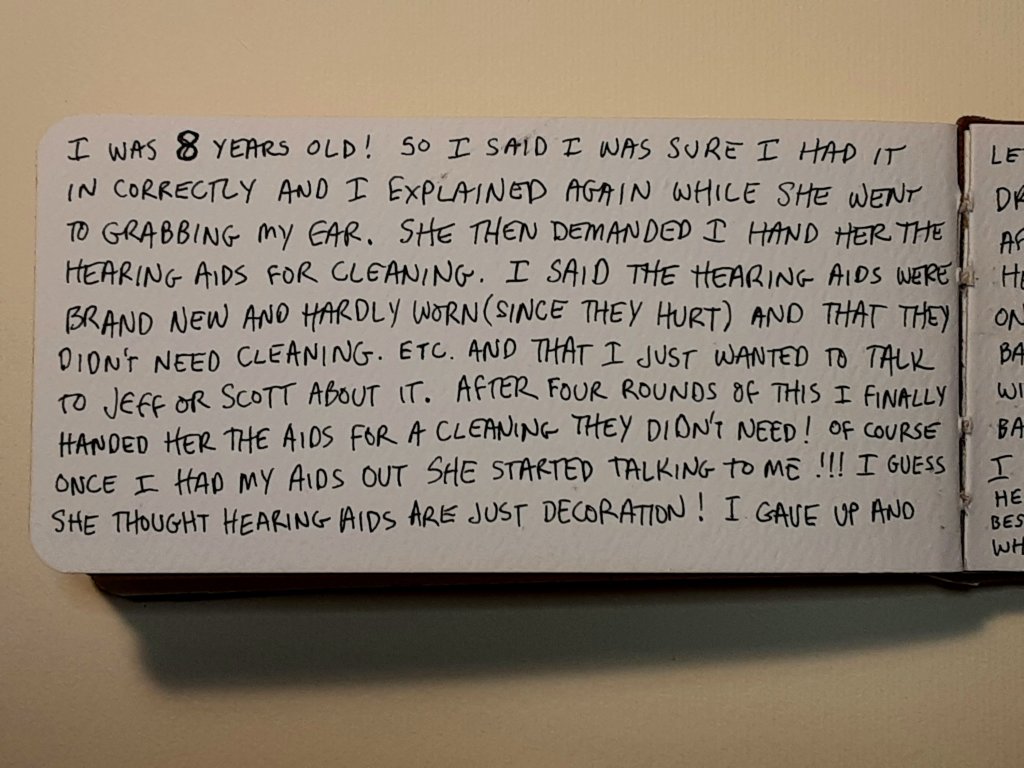 I WAS 8 YEARS OLD! SO I SAID I WAS SURE I HAD IT
IN CORRECTLY AND I EXPLAINED AGAIN WHILE SHE WENT
TO GRABBING MY EAR. SHE THEN DEMANDED I HAND HER THE
HEARING AIDS FOR CLEANING. I SAID THE HEARING AIDS WERE
BRAND NEW AND HARDLY WORN (SINCE THEY HURT) AND THAT THEY
DIDN'T NEED CLEANING. ETC. AND THAT I JUST WANTED TO TALK
TO JEFF OR SCOTT ABOUT IT. AFTER FOUR ROUNDS OF THIS I FINALLY
HANDED HER THE AIDS FOR A CLEANING THEY DIDN'T NEED! OF COURSE
ONCE I HAD MY AIDS OUT SHE STARTED TALKING TO ME !!! I GUESS
SHE THOUGHT HEARING AIDS ARE JUST DECORATION! I GAVE UP AND
LE
DR
AF
HE
ON
BA
WI
BA
I
HE
BES
WH